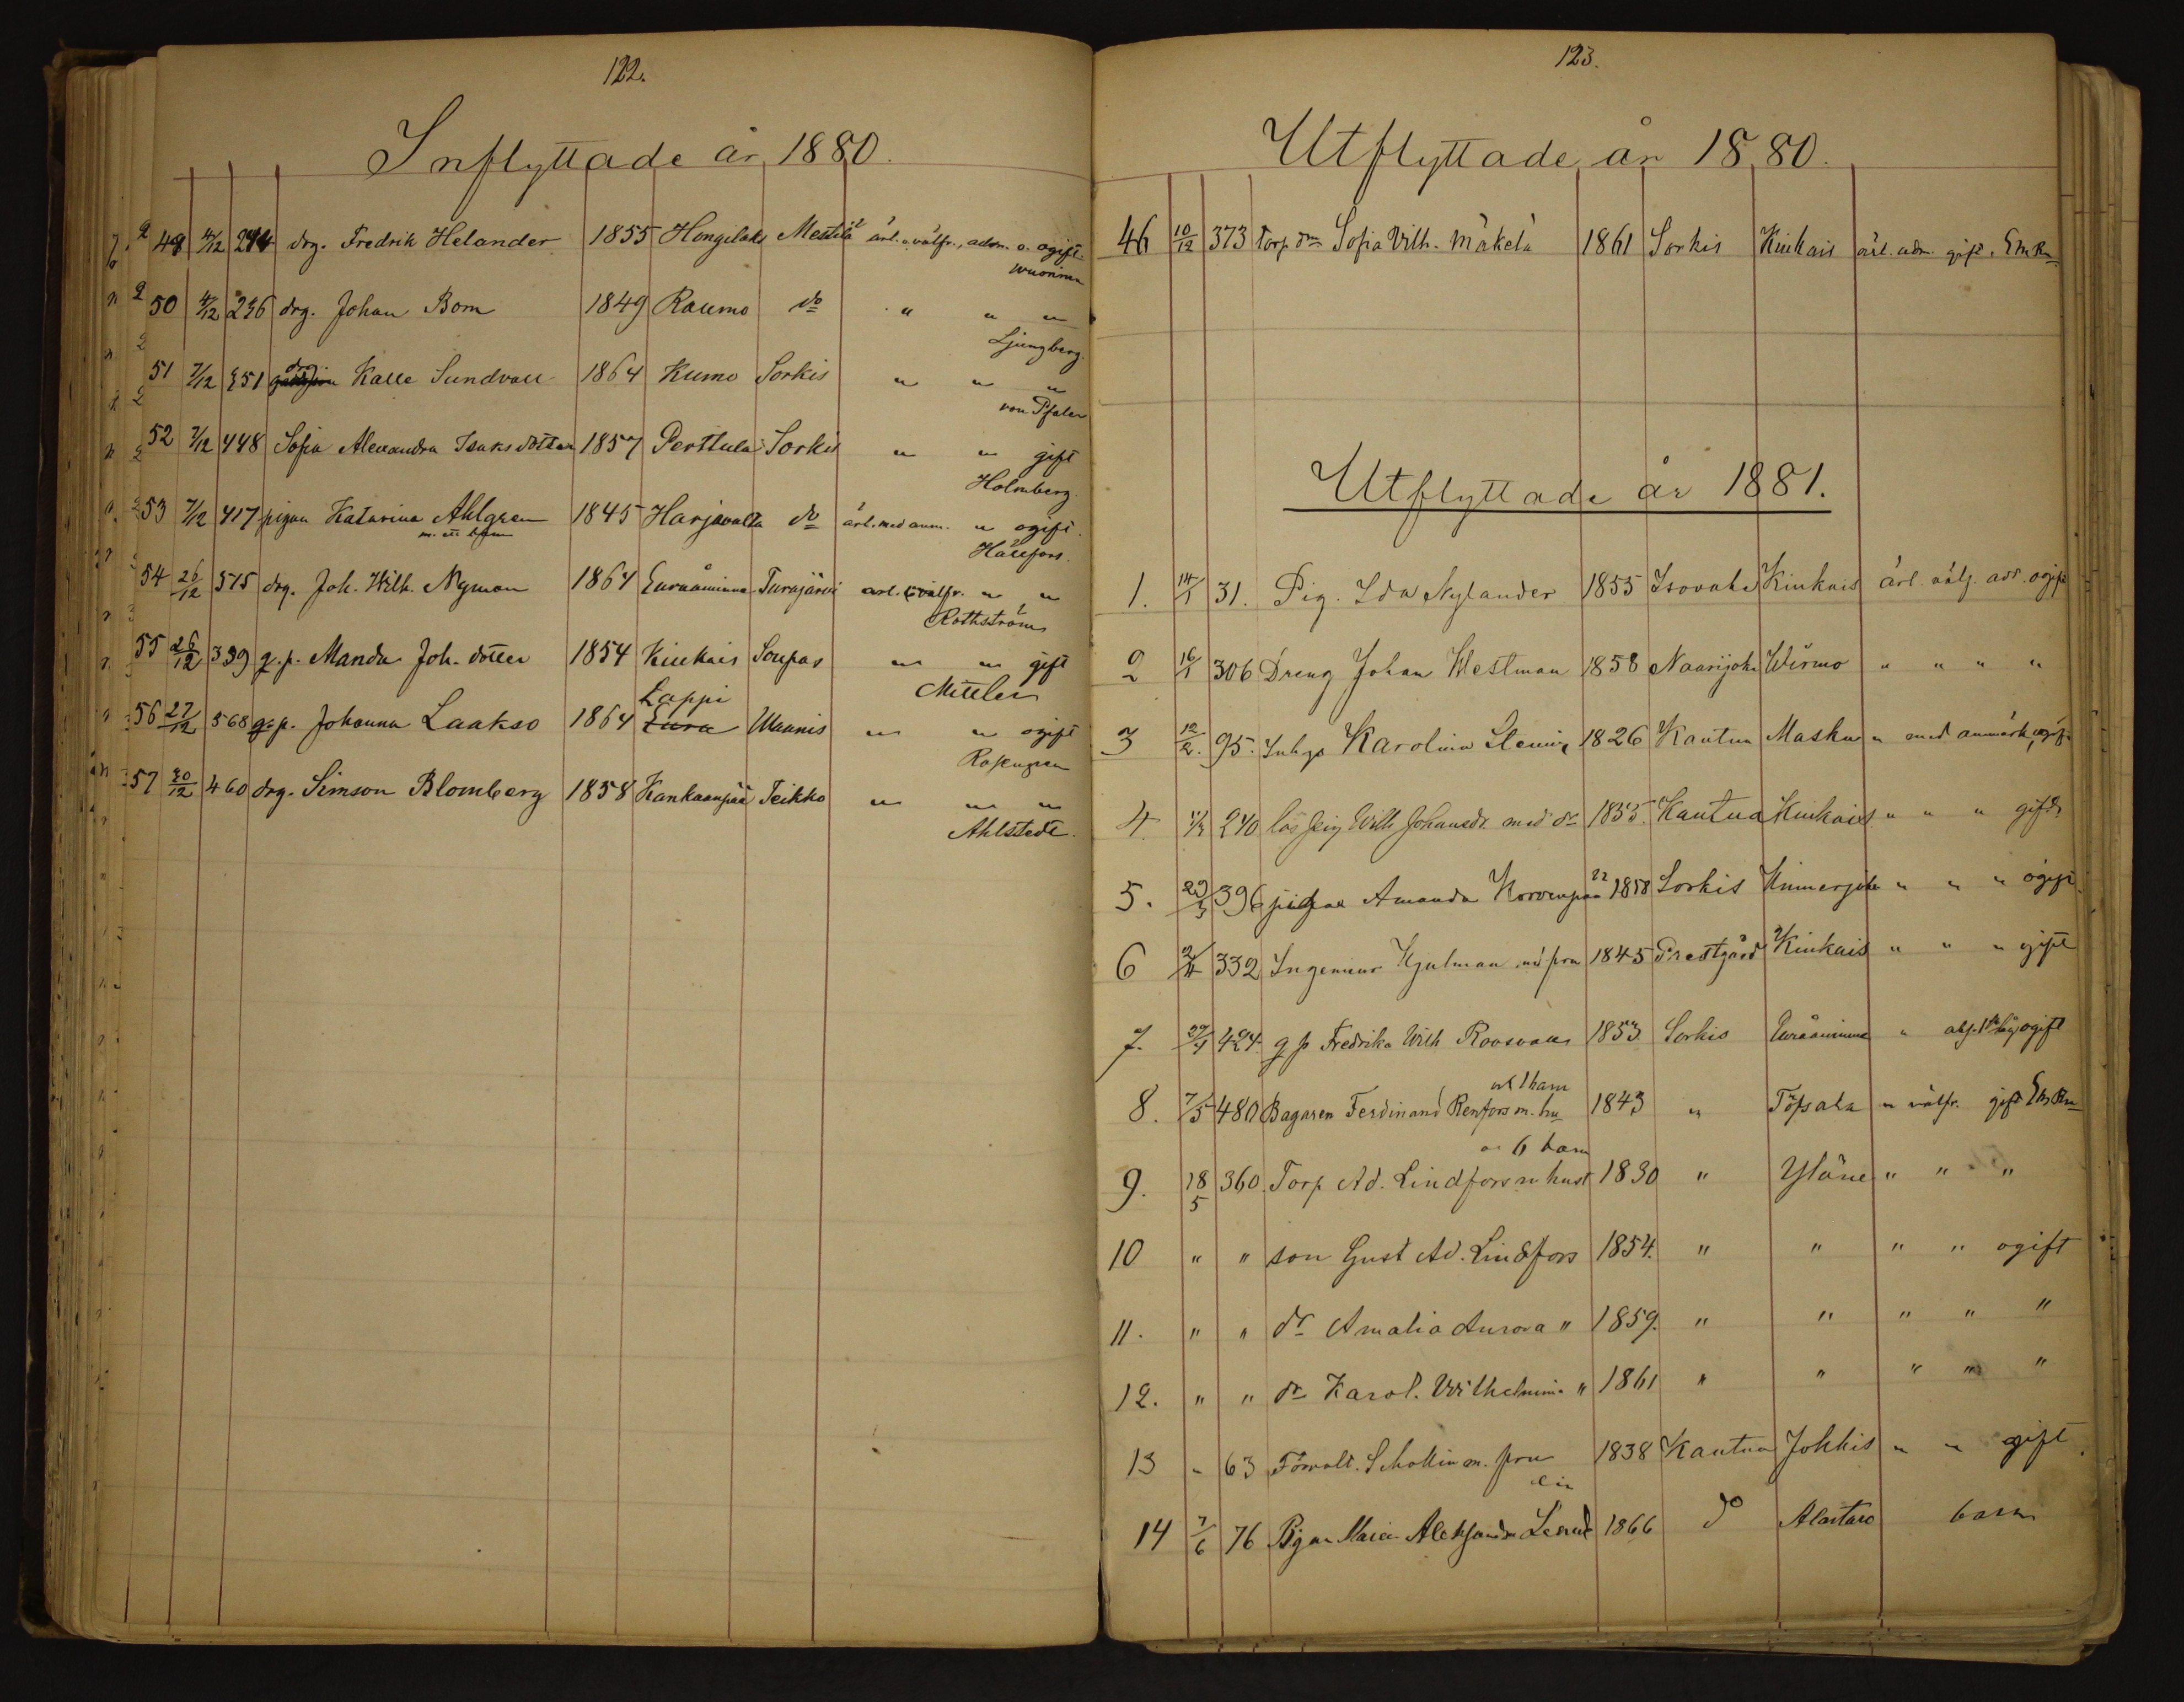 122.
Inflyttade år 1880.
49 4/12 244 drg. Fredrik Helander 1855 Hongilaks Mestilä ärl. o. välfr., adm. o. ogift.
Wuorinen
50 4/12 236 drg. Johan Bom 1849 Raumo do " " "
Ljungberg.
51 7/12 351 drg Kalle Sundvall 1864 Kumo Sorkis " " "
von Pfaler
52 7/12 448 Sofia Alexandra Isaksdotter 1857 Perttula Sorkis " " gift
Holmberg.
53 7/12 417 pigan Katarina Ahlgren 1845 Harjavalta do ärl. med anm. " ogift.
m. ett barn
Hällfors.
54 26/12 575 drg. Joh. Wilh. Nyman 1864 Euraåminne Turajärvi ärl. o välfr. " "
Rothström
55 26/12 399 g. p. Manda Joh. dotter 1854 Kiukais Soupas " " gift
Mittler
Lappi
56 27/12 568 g. p. Johanna Laakso 1864 Eura Waanis " " ogift
Rosengren
57 30/12 460 drg. Simson Blomberg 1858 Kankaanpää Teikko " " "
Ahlstedt.
123.
Utflyttade år 1880.
46 10/12 373 Torp. dr Sofia Vilh. Mäkelä 1861 Sorkis Kiukais ärl. adm. gift.
Utflyttade år 1881.
1. 14/1 31. Pig. Ida Nylander 1855 Isovahe Kiukais ärl. välf. adt. ogift
2 16/1 306 Dreng Johan Westman 1858 Naarijoki Wirmo " " " "
3 12/2. 95. Inhys Karolina 1826 Kautua Masku " med anmärk, ogift
4. 240 lös pig Wilh Johansdr. med dr 1855. Kautua Kiukais " " " gift
5. 29/3 396 pigan Amanda Korvenpää 22 1858 Sorkis Hinnerjoki " " " ogift.
6 2/4 332 Ingeniur Hjulman m fru 1845 Prestgård Kiukais " " " gift
7. 29/4 424. g p Fredrika Wilh Roosvall 1853 Sorkis Euraåminne " ogift
och 1 barn
8. 7/5 480 Bagaren Ferdinand Renfors m. hu 1843 " Töfsala " välfr. gift
o. 6 barn
9. 18/5 360. Torp Ad. Lindfors m hust 1830 " Yläne " " "
10 " " son Gust Ad. Lindfors 1854. " " " " ogift
11. " " dr Amalia Aurora " 1859. " " " " "
12. " " dr Karol. Wilhelmin. " 1861 " " " " "
13 " 63 Förvalt. Schollin m. fru 1838 Kautua Jokkis " " gift.
14 7/6 76 Pigan Maria Aleksandra 1866 do Alastaro barn